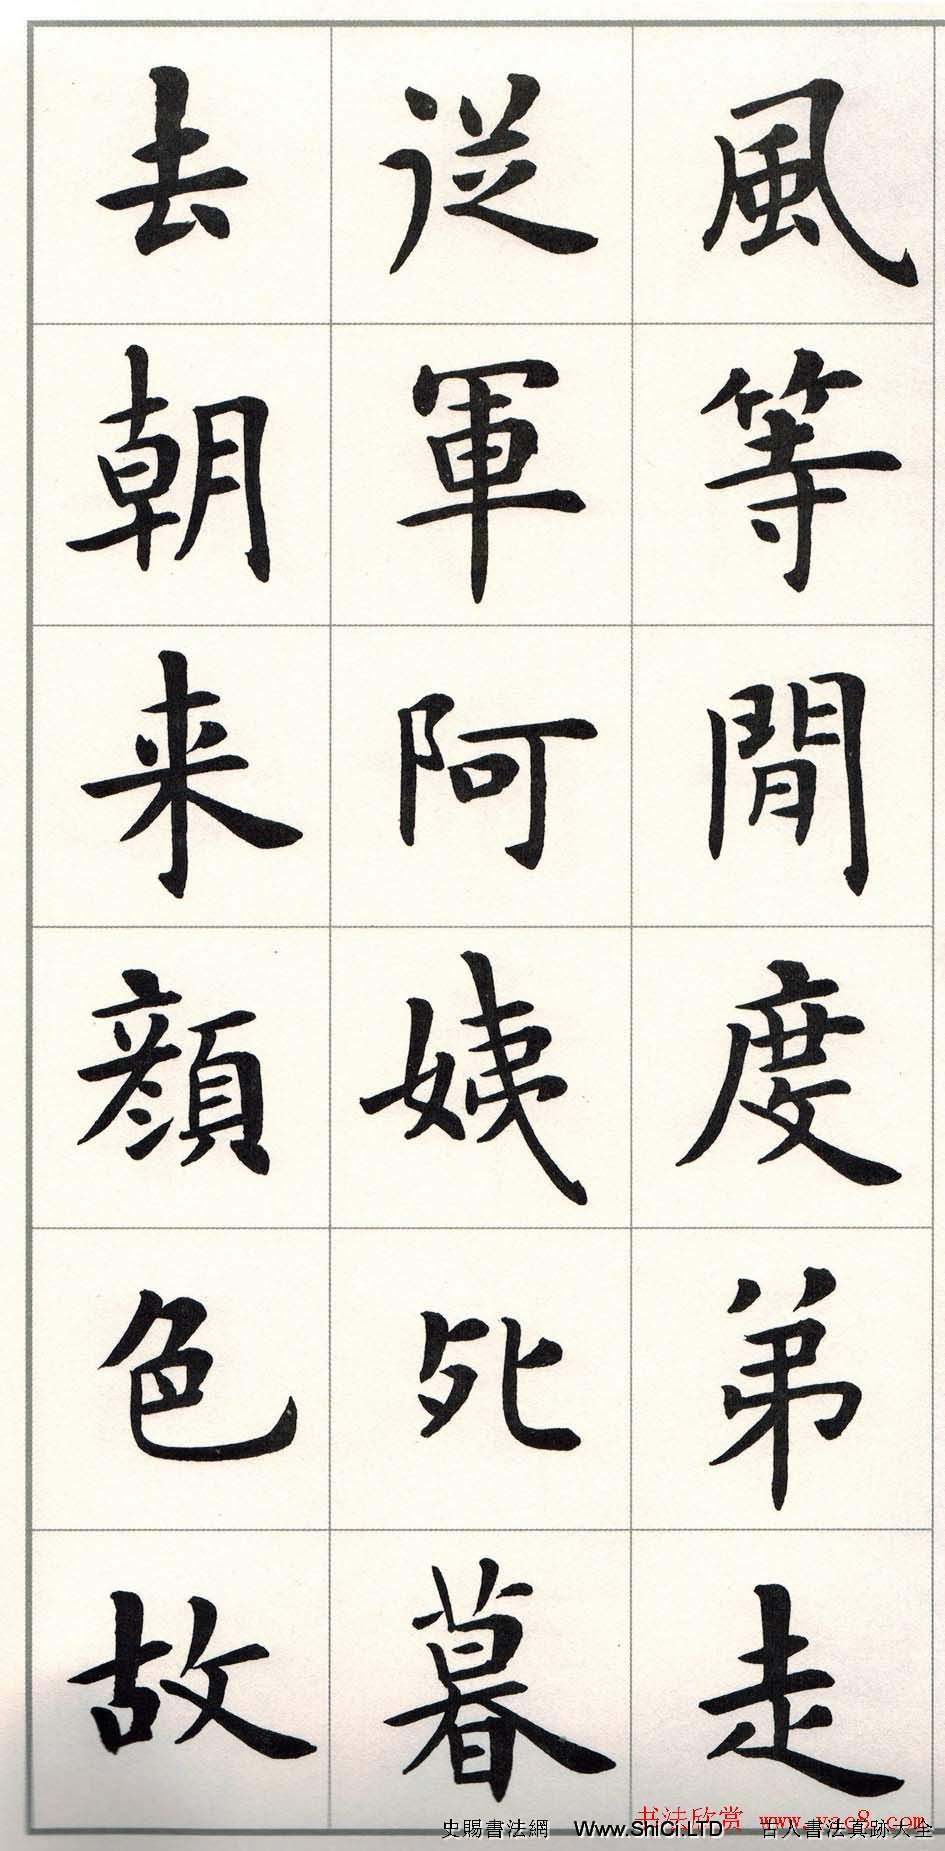 風等閒度弟走
從軍阿姨死暮
去朝来顔色故
书法欣赏 www.yac8.com
史賜書法網 Www.ShiCi.LTD 古人書法真跡大全